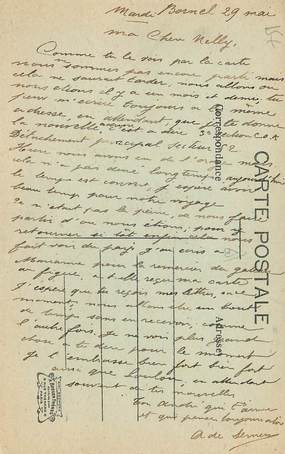 Mardi Bornel 29 mai
ma Chère Nelly,
Comme tu le vois par la carte
nous sommes pas encore parti mais
cela ne saurait tarder nous allons ou
nous étions il y a un mois et demie, tu
peux m'écrire toujours à la même
adresse, en attendant que je te donne
la nouvelle c'est à dire 3e Section C.O.A
Détachement principal Secteur 2
nous avons eu de l'orage mais
cela n'a pas duré longtemps aujourd'hui
le temps est couvert j'espère avoir
beau temps pour notre voyage
n'était pas la peine, de nous faire
partir d'ou nous étions, pour y
retourner si tôt
fait voir du pays j'ai écris à
Marianne pour la remercier du
de figue, a-t-elle reçu ma carte
J'espère que tu reçois mes lettres, en ce
moment, nous allons être un bout
de temps sans en recevoir, comme
l'autre fois. Je ne vois plus grand
chose à te dire pour le moment
je t'embrasse bien fort bien fort
ainsi que Loulou, en attendant
souvent de tes nouvelles
Ton qui t'aime
et qui pense toujours à toi
A de
CARTE POSTALE
Correspondance
Adresse